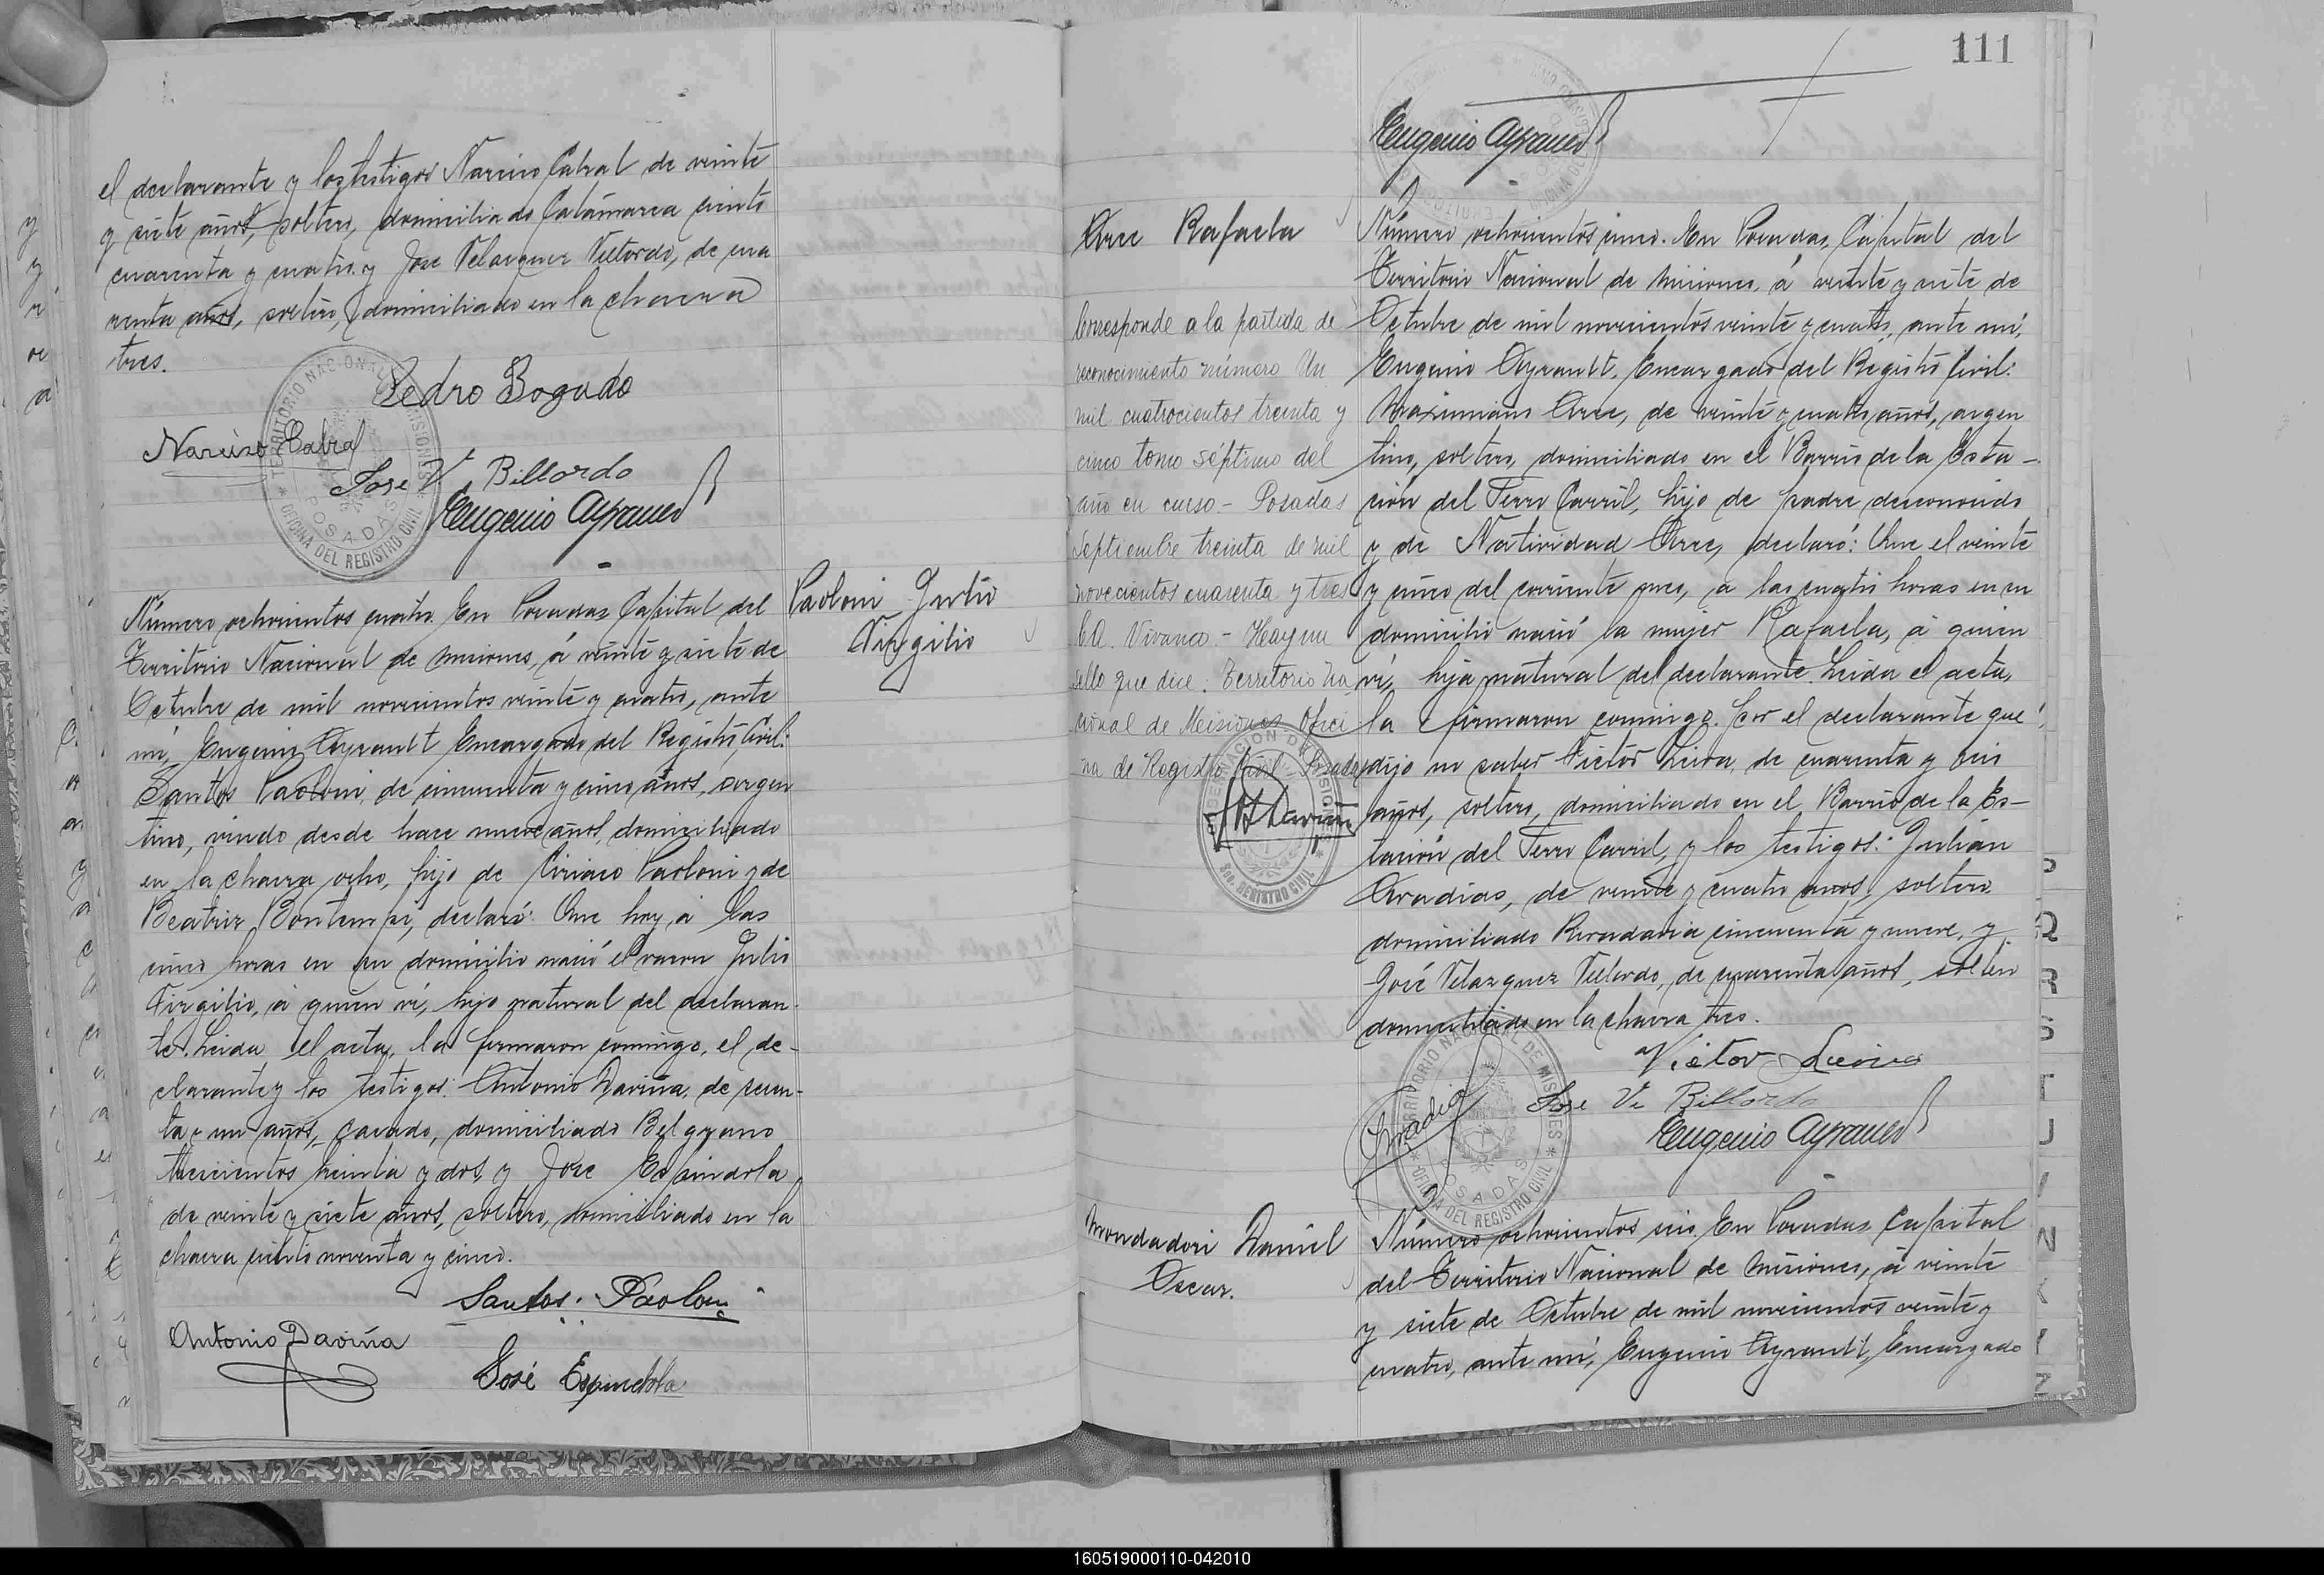 el declarante y los testigos Narciso Cabral de veinte
y siete años, soltero, domiciliado Catamarca ciento
cuarenta y cuatro y Jose Velazquez Villordo, de cua
renta años, soltero, domiciliado en la chacra
tres.
Pedro Bogado
Narciso Cabral
Jose V. Billordo
Eugenio Ayrault
TERRITORIO NACIONAL DE MISIONES
POSADAS
OFICINA DEL REGISTRO CIVIL
Paoloni Julio
Virgilio
Número ochocientos cuatro. En Posadas, Capital del
Territorio Nacional de Misiones, á veinte y siete de
Octubre de mil novecientos veinte y cuatro, ante
mí, Eugenio Ayrault Encargado del Registro Civil:
Santos Paoloni, de cincuenta y cinco años, argen
tino, viudo desde hace nueve años, domiciliado
en la chacra ocho, hijo de Ciriaco Paoloni y de
Beatriz Bontempi, declaró: Que hoy, á las
cinco horas en su domicilio nació el varon Julio
Virgilio, á quien ví, hijo natural del declaran-
te. Leida el acta, la firmaron conmigo, el de-
clarante y los testigos: Antonio Daviña, de
y un años, casado, domiciliado Belgrano
trescientos treinta y dos, y Jose Espindola
de veinte y siete años, soltero, domiciliado en la
chacra ciento noventa y cinco.
Santos Paoloni
Antonio Daviña
José Espindola
111
Eugenio Ayrault
Arce Rafaela
Corresponde a la partida de
reconocimiento número Un
mil cuatrocientos treinta y
cinco tomo séptimo del
año en curso - Posadas
Septiembre treinta de mil
novecientos cuarenta y tres
C.A. Vivanco - Hay un
sello que dice: Territorio Na
cional de Misiones Ofici
na de Registro Civil Posadas
GOBERNACION DE MISIONES
Sec. REGISTRO CIVIL
Número ochocientos cinco. En Posadas, Capital del
Territorio Nacional de Misiones, á veinte y siete de
Octubre de mil novecientos veinte y cuatro, ante mí,
Eugenio Ayrault, Encargado del Registro Civil:
Maximiano Arce, de veinte y cuatro años, argen
tino, soltero, domiciliado en el Barrio de la Esta-
ción del Ferro Carril, hijo de padre desconocido
y de Natividad Arce, declaró: Que el veinte
y cinco del corriente mes, á las cuatro horas en su
domicilio nació la mujer Rafaela, á quien
ví, hija natural del declarante. Leida el acta,
la firmaron conmigo. Por el declarante que
dijo no saber Victor Leiva, de cuarenta y seis
años, soltero, domiciliado en el Barrio de la Es-
tación del Ferro Carril, y los testigos: Julián
Aradias, de veinte y cuatro años, soltero
domiciliado Rivadavia cincuenta y nueve, y
José Velazquez Villordo, de cuarenta años, soltero
domiciliado en la chacra tres.
Victor Leiva
Jose V. Billordo
Eugenio Ayrault
TERRITORIO NACIONAL DE MISIONES
POSADAS
OFICINA DEL REGISTRO CIVIL
Mondadori Daniel
Oscar.
Número ochocientos seis. En Posadas, Capital
del Territorio Nacional de Misiones, á veinte
y siete de Octubre de mil novecientos veinte y
cuatro, ante mí, Eugenio Ayrault, Encargado
160519000110-042010